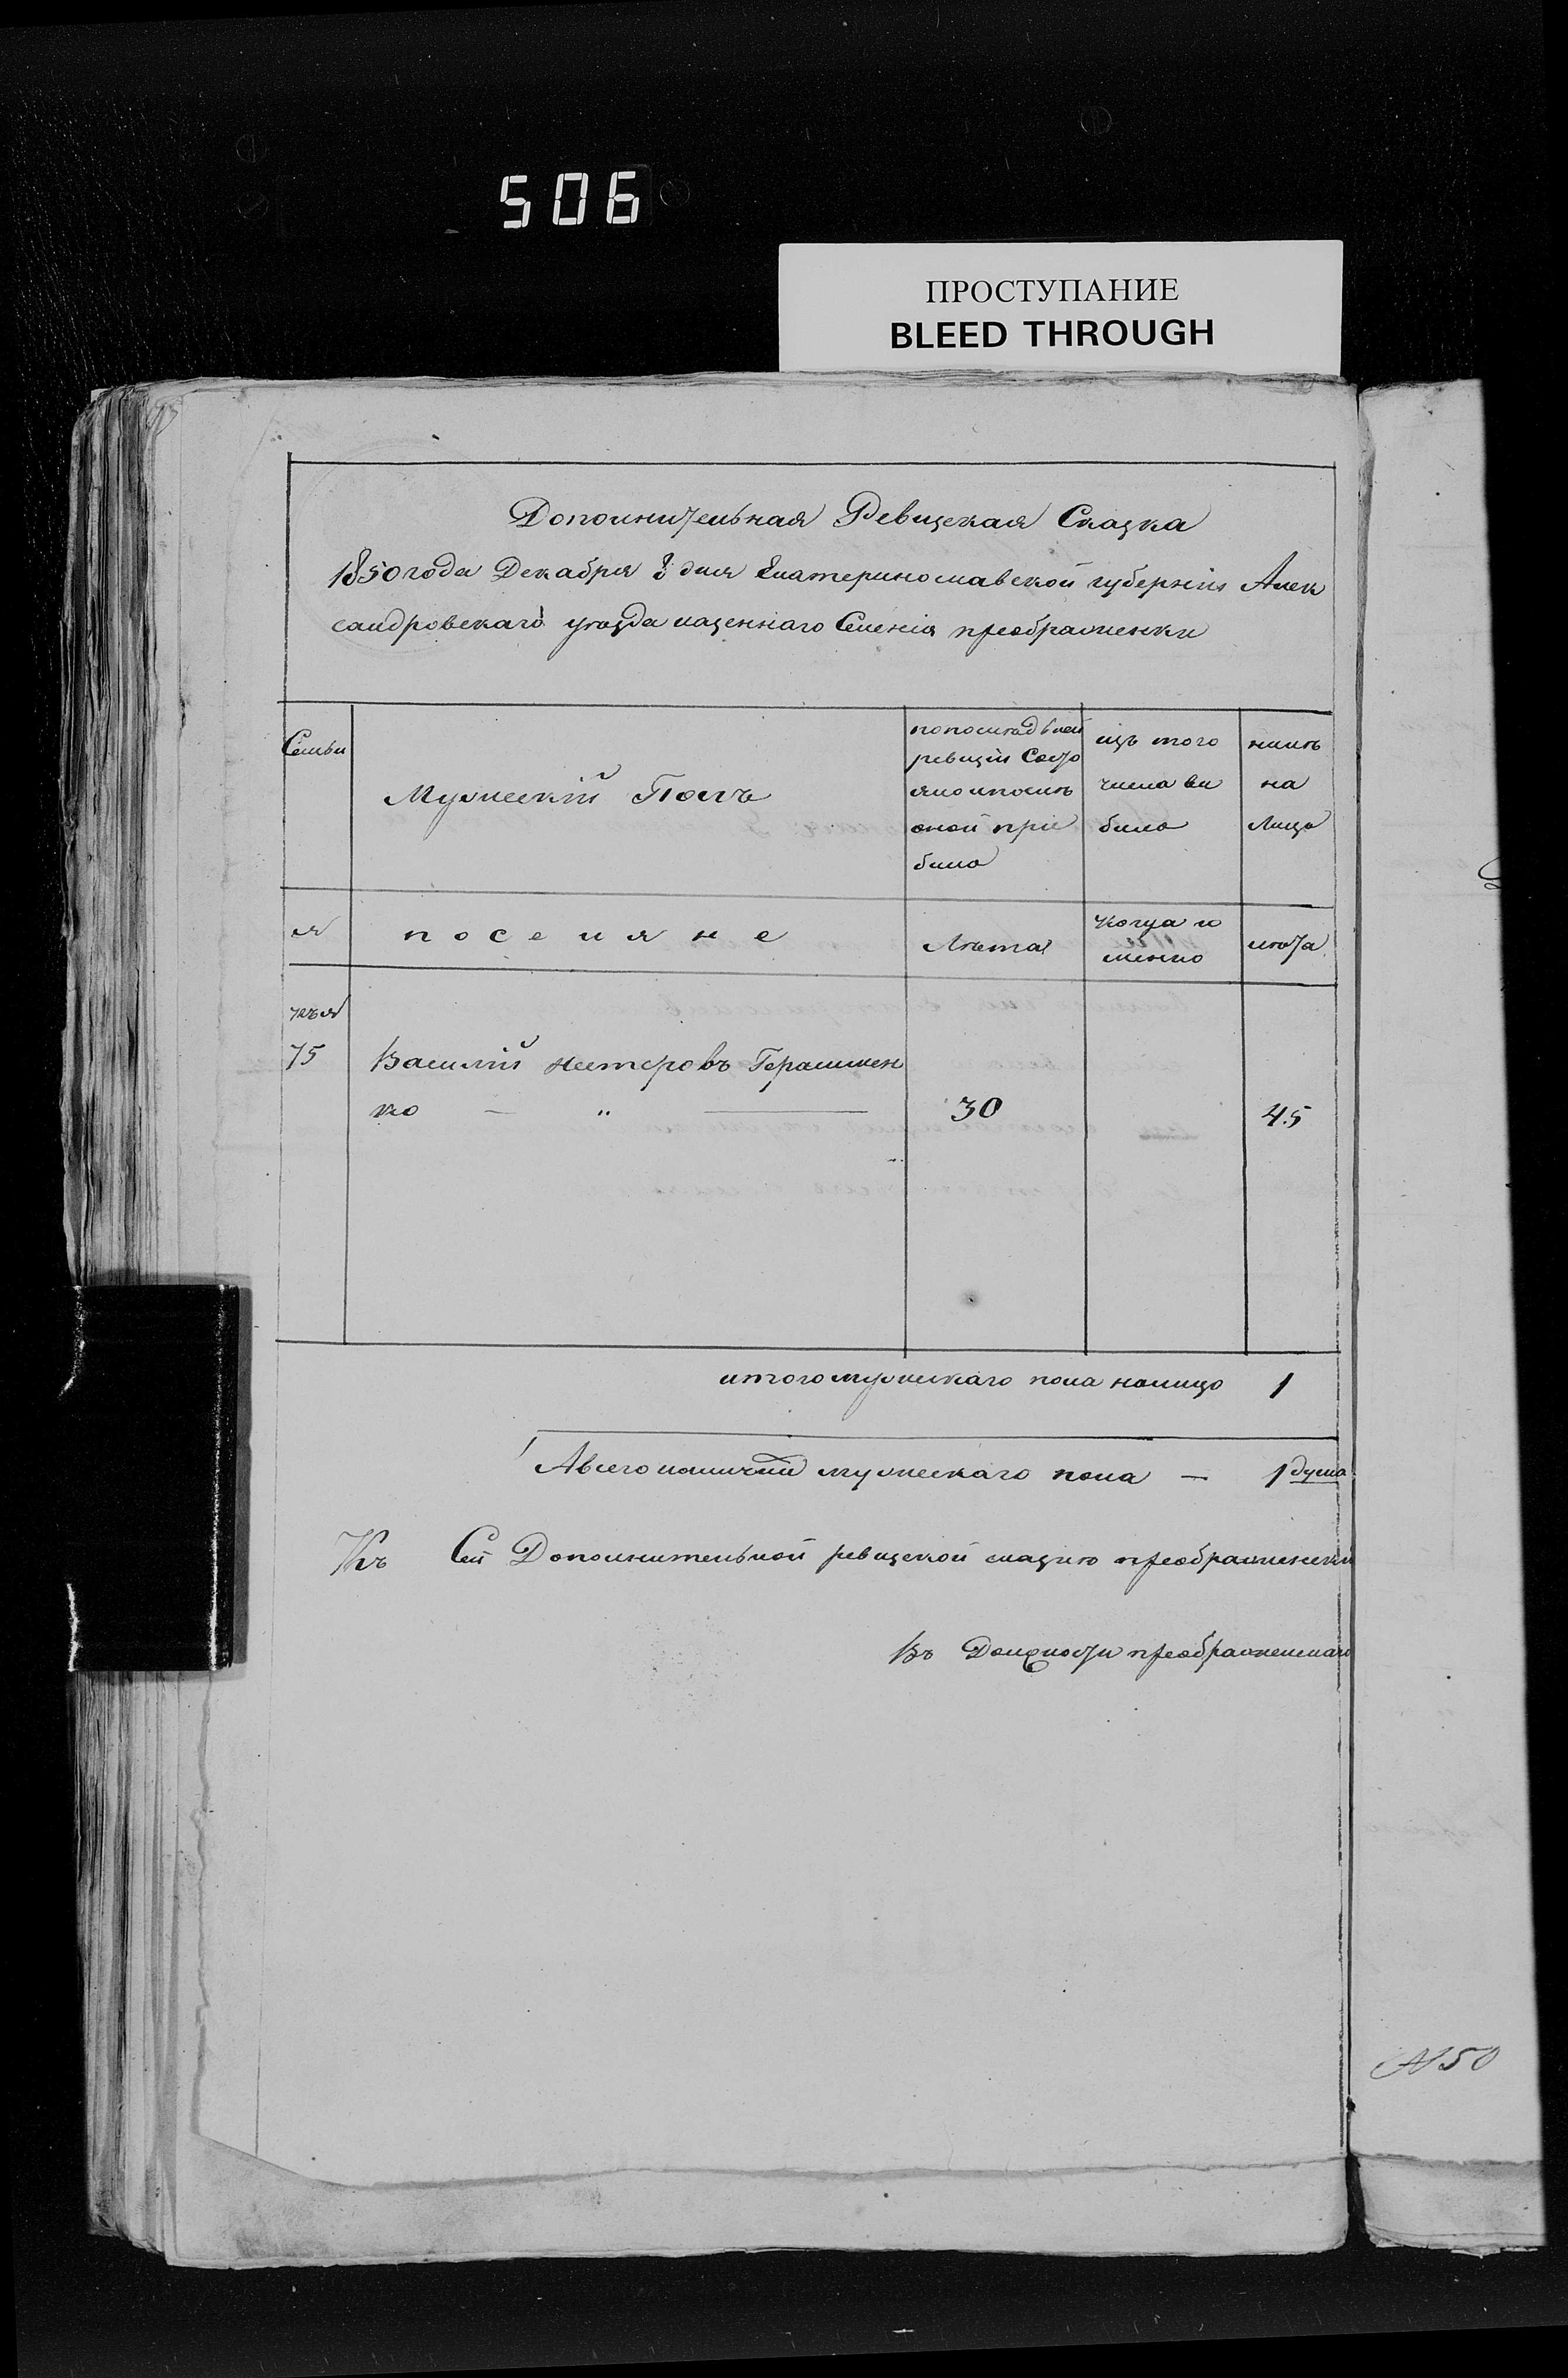 506
ПРОСТУПАНИЕ
BLEED THROUGH
Дополнительная Ревизская Сказка
1850 года Декабря 8 дня Екатеринославской губерніи Алек
сандровскаго уезда казеннаго Селенія преображенки
Семьи
Мужескій Полъ
по последней
ревизіи Состо
яло и после
оной при
было
изъ того
числа вы
было
ныне
на
Лицо
поселяне
Лета
Когда и
менно
лета
75 Василій Нестеровъ Герасимен
ко — " — 30 45
итого мужескаго пола налицо 1
А всего наличній мужескаго пола — 1 душа
Къ Сей Дополнительной ревизской сказке преображенски
Въ Должности преображенскаго
№ 50